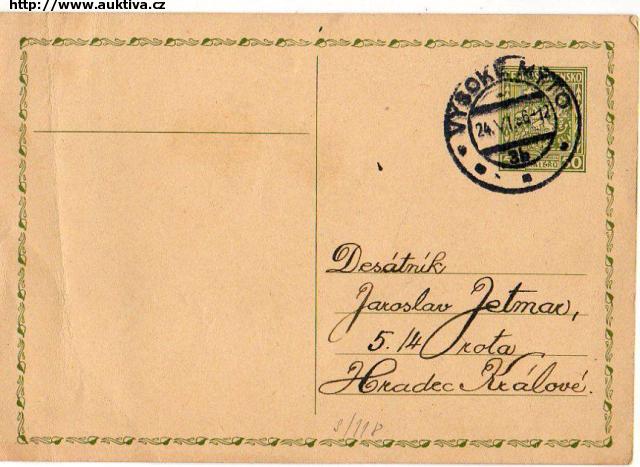 http://www.auktiva.cz
VYSOKÉ MÝTO
3b
Desátník
Jaroslav Jetmar,
5./4 rota
Hradec Králové.
8/118